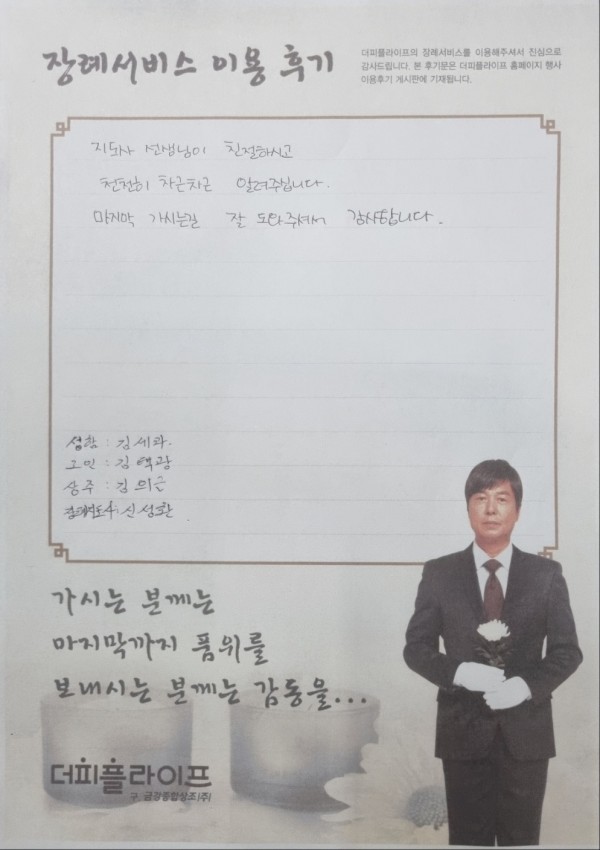 장례서비스 이용 후기
더피플라이프의 장례서비스를 이용해주셔서 진심으로
감사드립니다. 본 후기문은 더피플라이프 홈페이지 행사
이용후기 게시판에 기재됩니다.
지도사 선생님이 친절하시고
천천히 차근차근 알려주십니다.
마지막 가시는길 잘 도와주셔서 감사합니다.
성함 : 김세라.
고인 : 김택광
상주 : 김의근
장례지도사 : 신성환
가시는 분께는
마지막까지 품위를
보내시는 분께는 감동을...
더피플라이프
구. 금강종합상조(주)